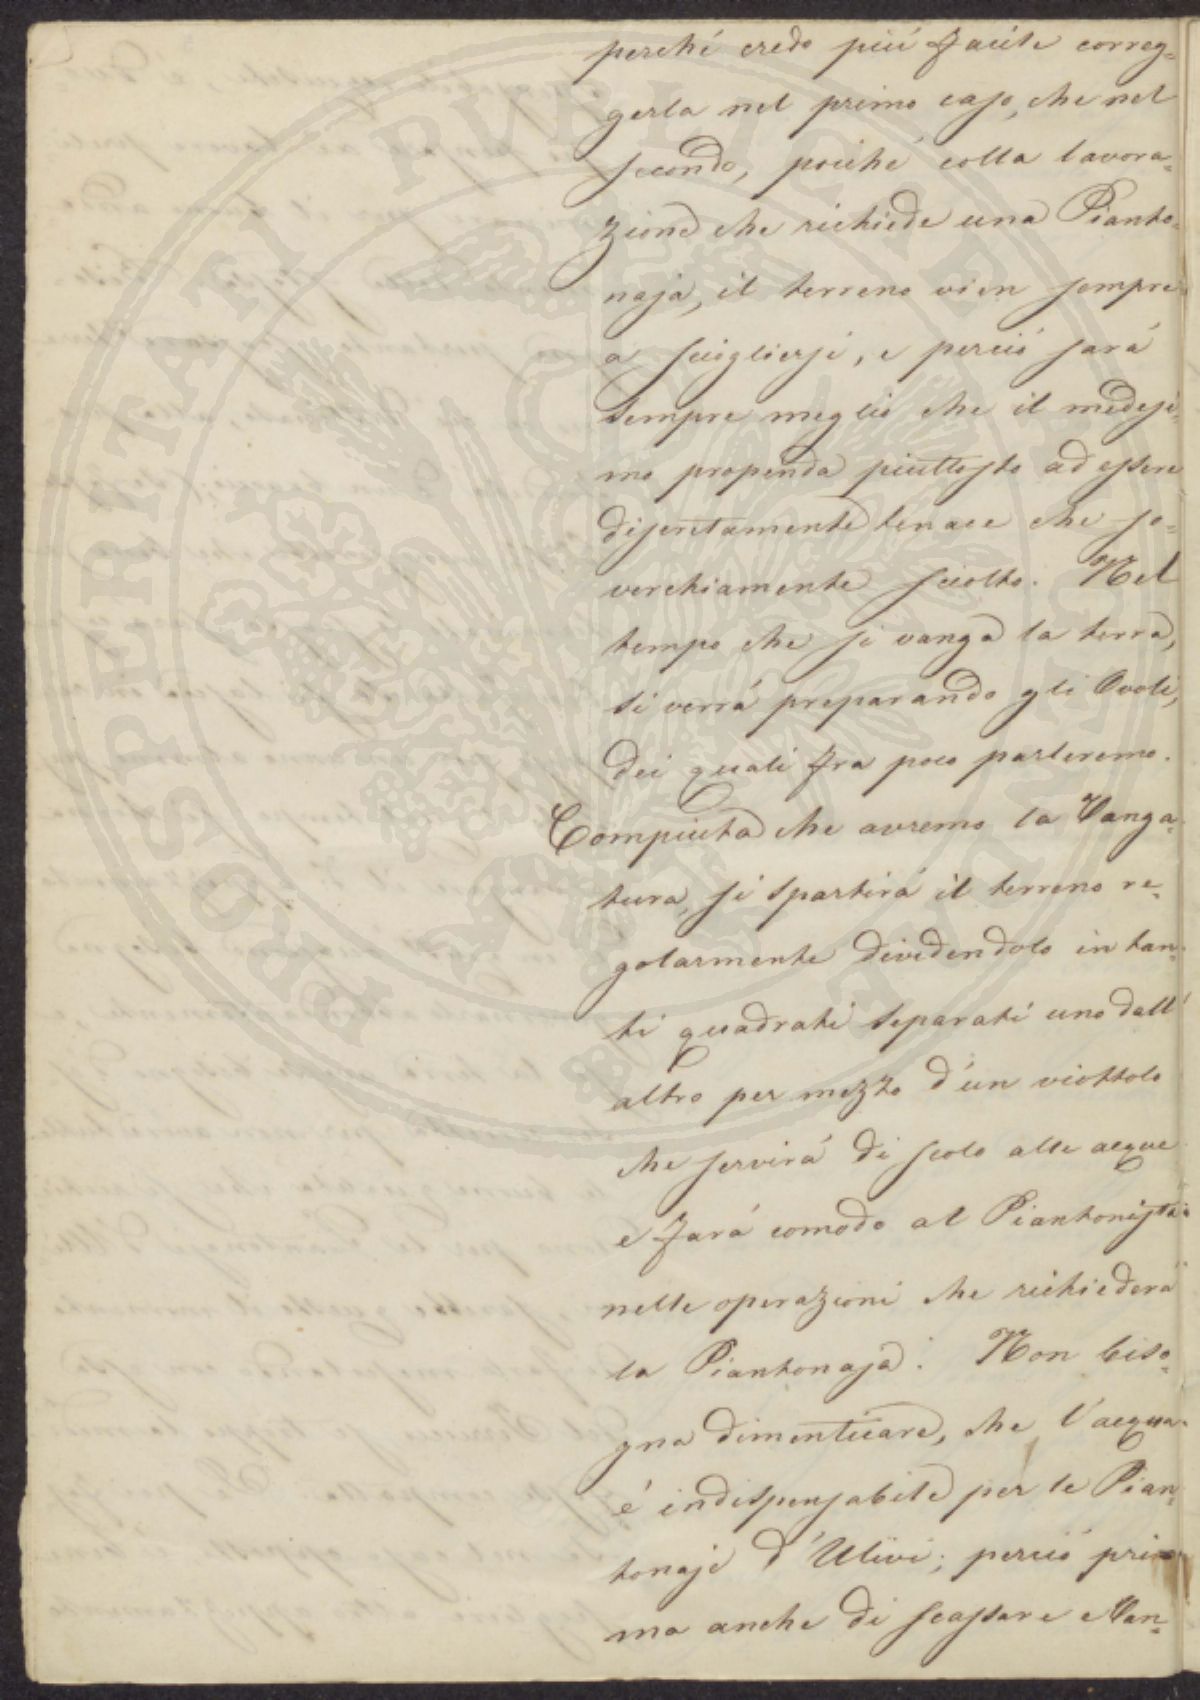 perché credo piú facile correg=
gerla nel primo caso, che nel
secondo, poiché colla lavora=
zione che richiede una Pianto=
naja, il terreno vien sempre
a sciogliersi, e perció sará
sempre meglio che il medesi=
mo propenda piuttosto ad essere
discretamente tenace che so=
verchiamente sciolto. Nel
tempo che si vanga la terra,
si verrá preparando gli Ovoli,
dei quali fra poco parleremo.
Compiuta che avremo la Vanga=
tura, si spartirá il terreno re=
golarmente dividendolo in tan=
ti quadrati separati uno dall'
altro per mezzo d'un viottolo
che servirá di scolo alle acque
e fará comodo al Piantonista
nelle operazioni che richiederá
la Piantonaja. Non biso=
gna dimenticare, che l'acqua
é indispensabile per le Pian=
tonaje d'Ulivi; perció pri=
ma anche di scassare e Van=
PROSPERITATI PVBLICAE AVGENDAE